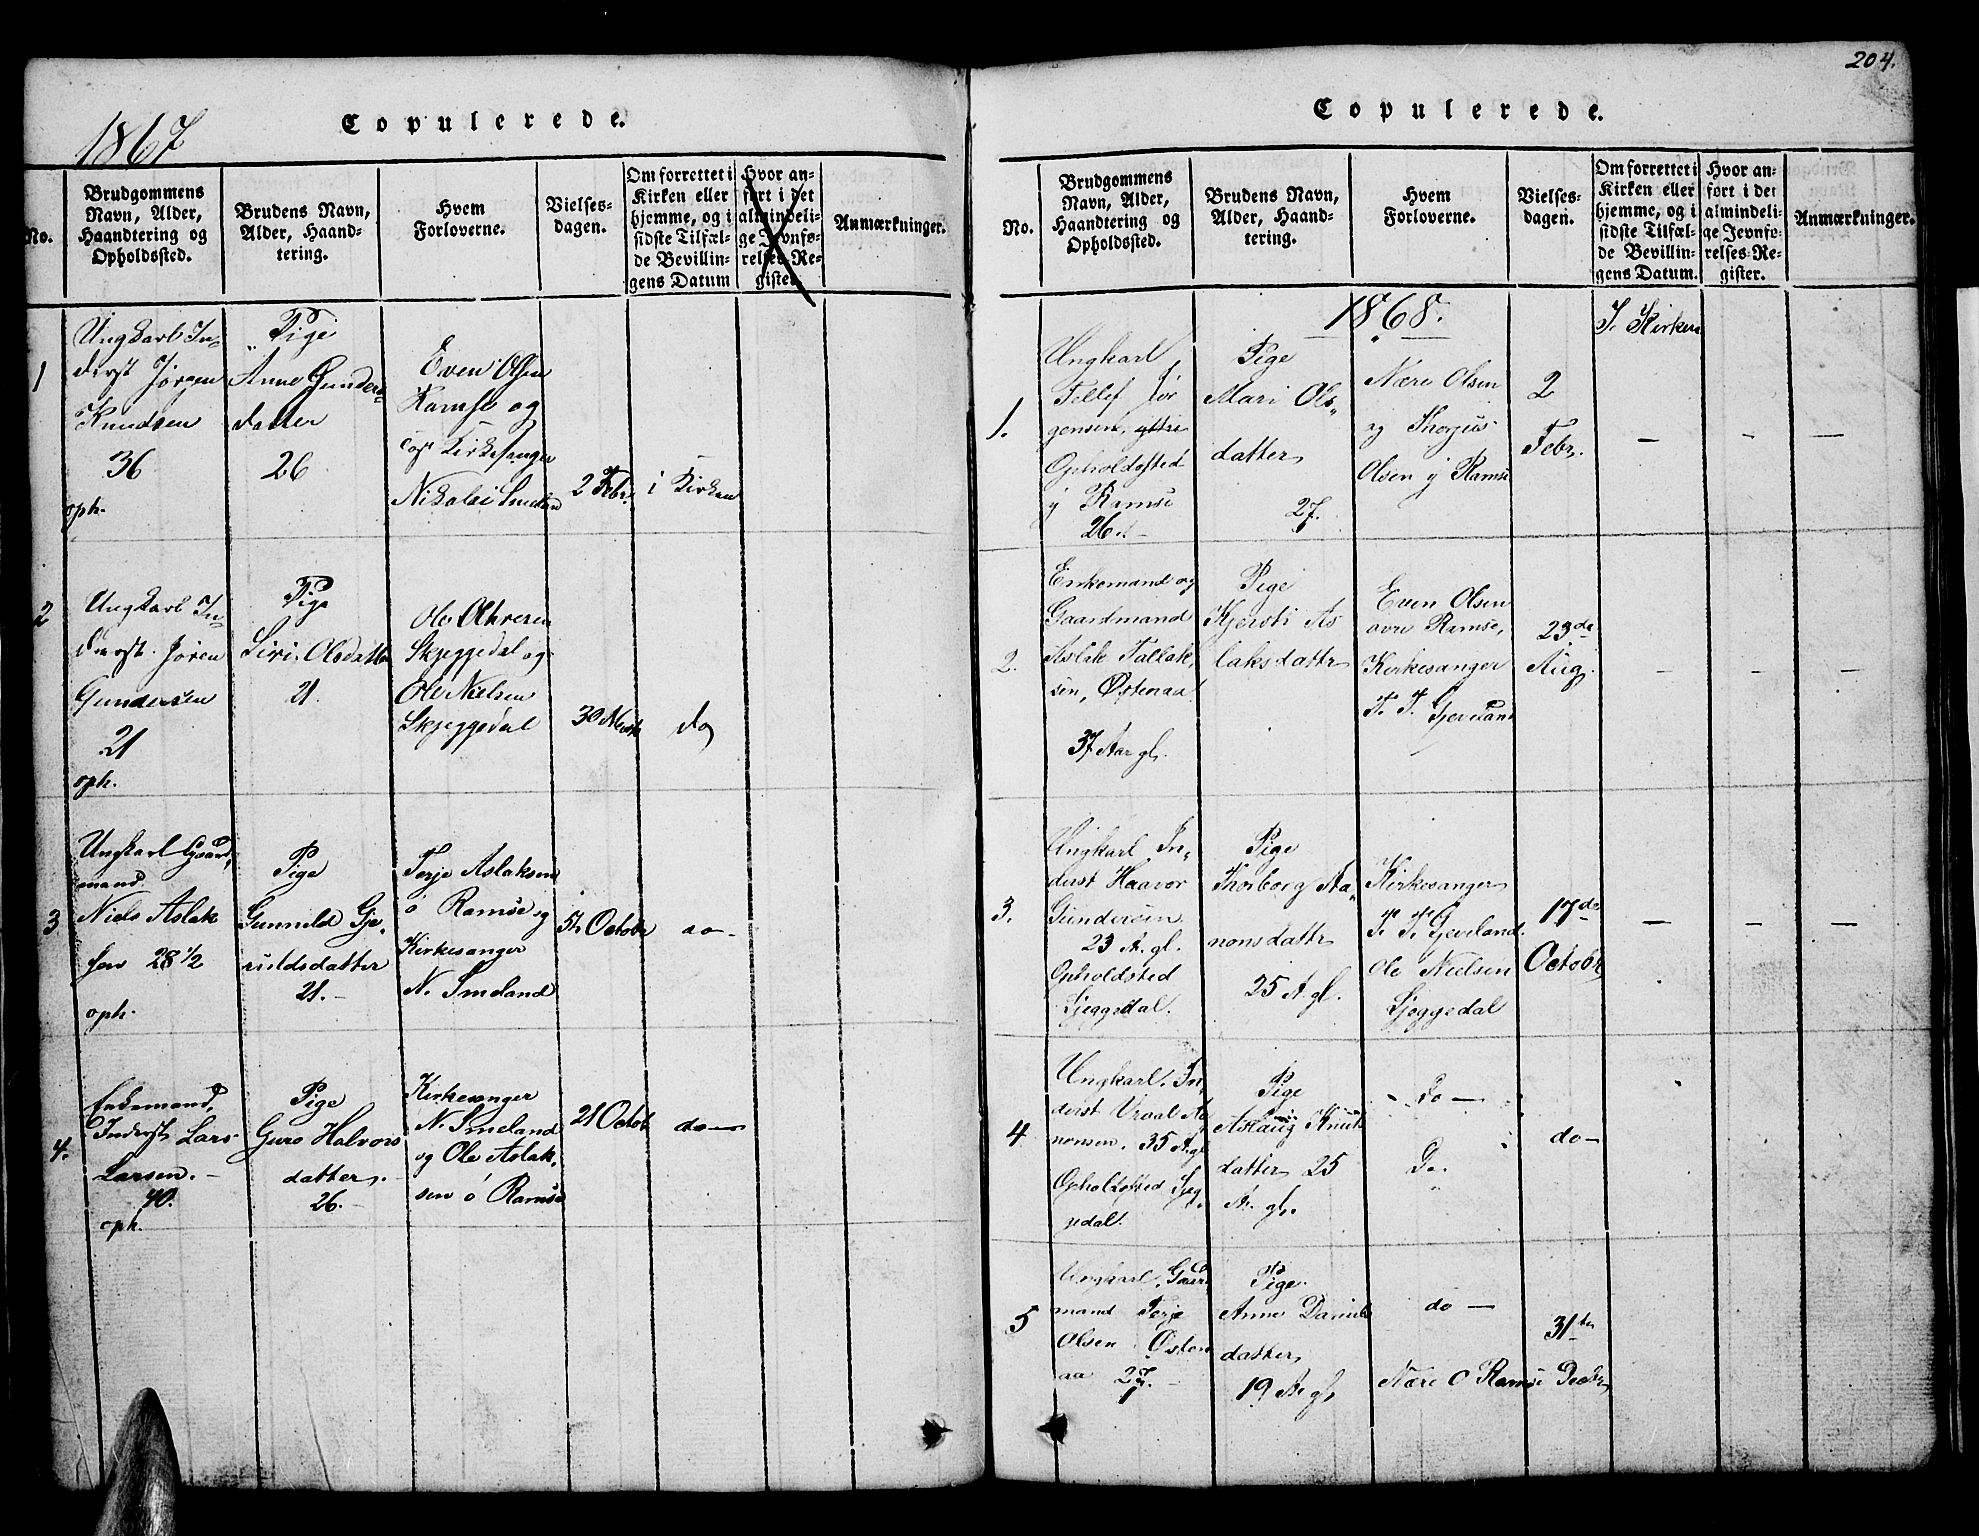 1867
Copulerede.
No.
Brudgommens
Navn, Alder,
Haandtering og
Opholdssted.
Brudens Navn,
Alder, Haand-
tering.
Hvem
Forloverne.
Vielses-
dagen.
Om forrettet i
Kirken eller
hjemme, og i
sidste Tilfæl-
de Bevillin-
gens Datum
Hvor an-
ført i det
almindeli-
ge Jevnfø-
relses-Re-
gister.
Anmærkninger.
1
Ungkarl In-
derst Jørgen
Knudsen
36
oph.
Pige
Anne Gunders-
datter
26
Even Olsen
Ramse og
Kirkesanger
Nikolai Smeland
2 Febr.
i Kirken
2
Ungkarl In-
derst Jören
Gundersen
21
oph.
Pige
Siri Olsdatter
21.
Ole
Skjeggedal og
Ole Nielsen
Skjeggedal
30
do
3
Ungkarl Gaard-
mand
Niels Aslak
sen 28 1/2
oph.
Pige
Gunnild Gje-
ruldsdatter
21.-
Terje Aslaksen
ö Ramse og
Kirkesanger
N. Smeland
5te October
do-
4.
Enkemand,
Inderst Lars
Larsen.-
40.
oph.
Pige
Guro Halvors
datter.-
26.-
Kirkesanger
N. Smeland
og Ole Aslak-
sen ö Ramse
21 Octob
do-
204.
Copulerede.
No.
Brudgommens
Navn, Alder,
Haandtering og
Opholdssted.
Brudens Navn,
Alder, Haand-
tering.
Hvem
Forloverne.
Vielses-
dagen.
Om forrettet i
Kirken eller
hjemme, og i
sidste Tilfæl-
de Bevillin-
gens Datum.
Hvor an-
ført i det
almindeli-
ge Jevnfø-
relses-Re-
gister.
Anmærkninger.
1868.
I Kirken
1.
Ungkarl
Tellef Jör
gensen,
Opholdssted
y Ramse
26.-
Pige
Mari Ols-
datter
27.
Nære Olsen
og Thorjus
Olsen y Ramse
2
Febr.
— — —
2.
Enkemand og
Gaardmand
Aslak Tallak-
sen, Østenaa
37 Aar gl.
Pige
Kjersti As
laksdattr
Even Olsen
övre Ramse,
Kirkesanger
T. T. Gjeveland
23de
Aug.
— — —
3.
Ungkarl In-
derst Haavor
Gundersen
23 A. gl.
Opholdsted
Sjeggedal.
Pige
Thorborg Aa-
nonsdattr
25 A. gl.
Kirkesanger
T. T. Gjeveland.
Ole Nielsen
Sjeggedal
17de
Octobr
— — —
4
Ungkarl. In-
derst Vraal Aa
nonsen. 35 A. gl
Opholdssted Sjeg-
gedal.
Pige
Aslaug Knuts
datter 25
A. gl.
Do —
Do.
do—
5
Ungkarl. Gaar
mand Terje
Olsen Østen
aa 27.-
Pige.
Anne Daniels
datter,
19 A gl,
do —
Nære O Ramse
31te
Decbr